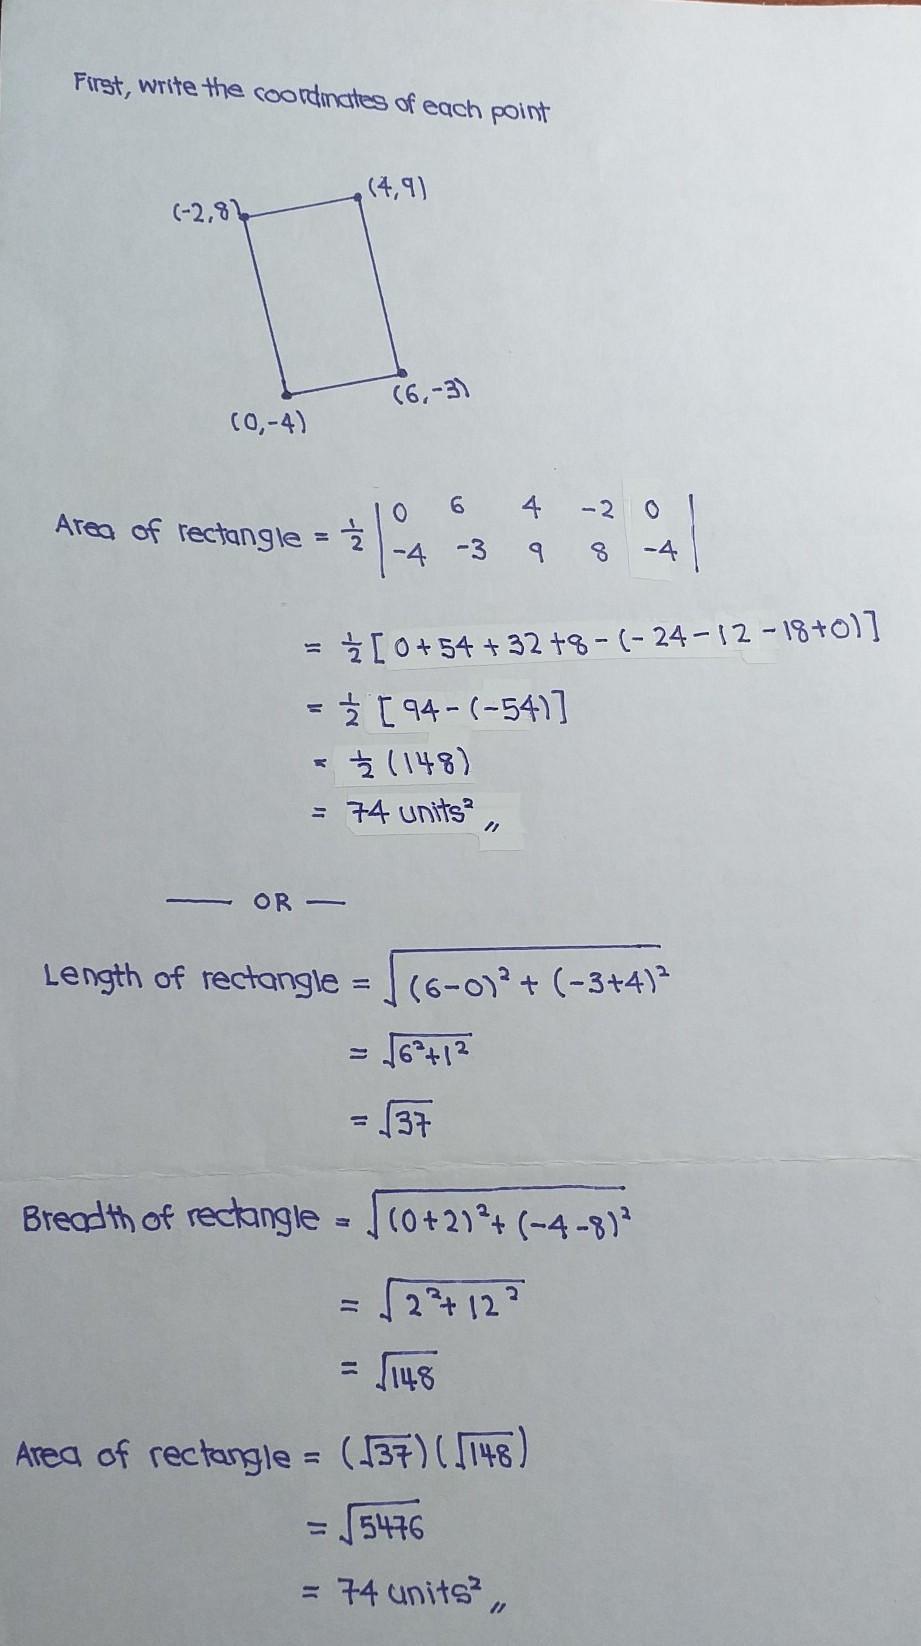 First, write the coordinates of each point
(4,9)
(-2,8)
(6,-3)
(0,-4)
Area of rectangle = 1/2 | 0 6 4 -2 0 |
| -4 -3 9 8 -4 |
= 1/2 [ 0+54+32+8-(-24-12-18+0)]
= 1/2 [94-(-54)]
= 1/2 (148)
= 74 units² ,,
— OR —
Length of rectangle = √((6-0)²+(-3+4)²)
= √(6²+1²)
= √37
Breadth of rectangle = √((0+2)²+(-4-8)²)
= √(2²+12²)
= √148
Area of rectangle = (√37)(√148)
= √5476
= 74 units² ,,